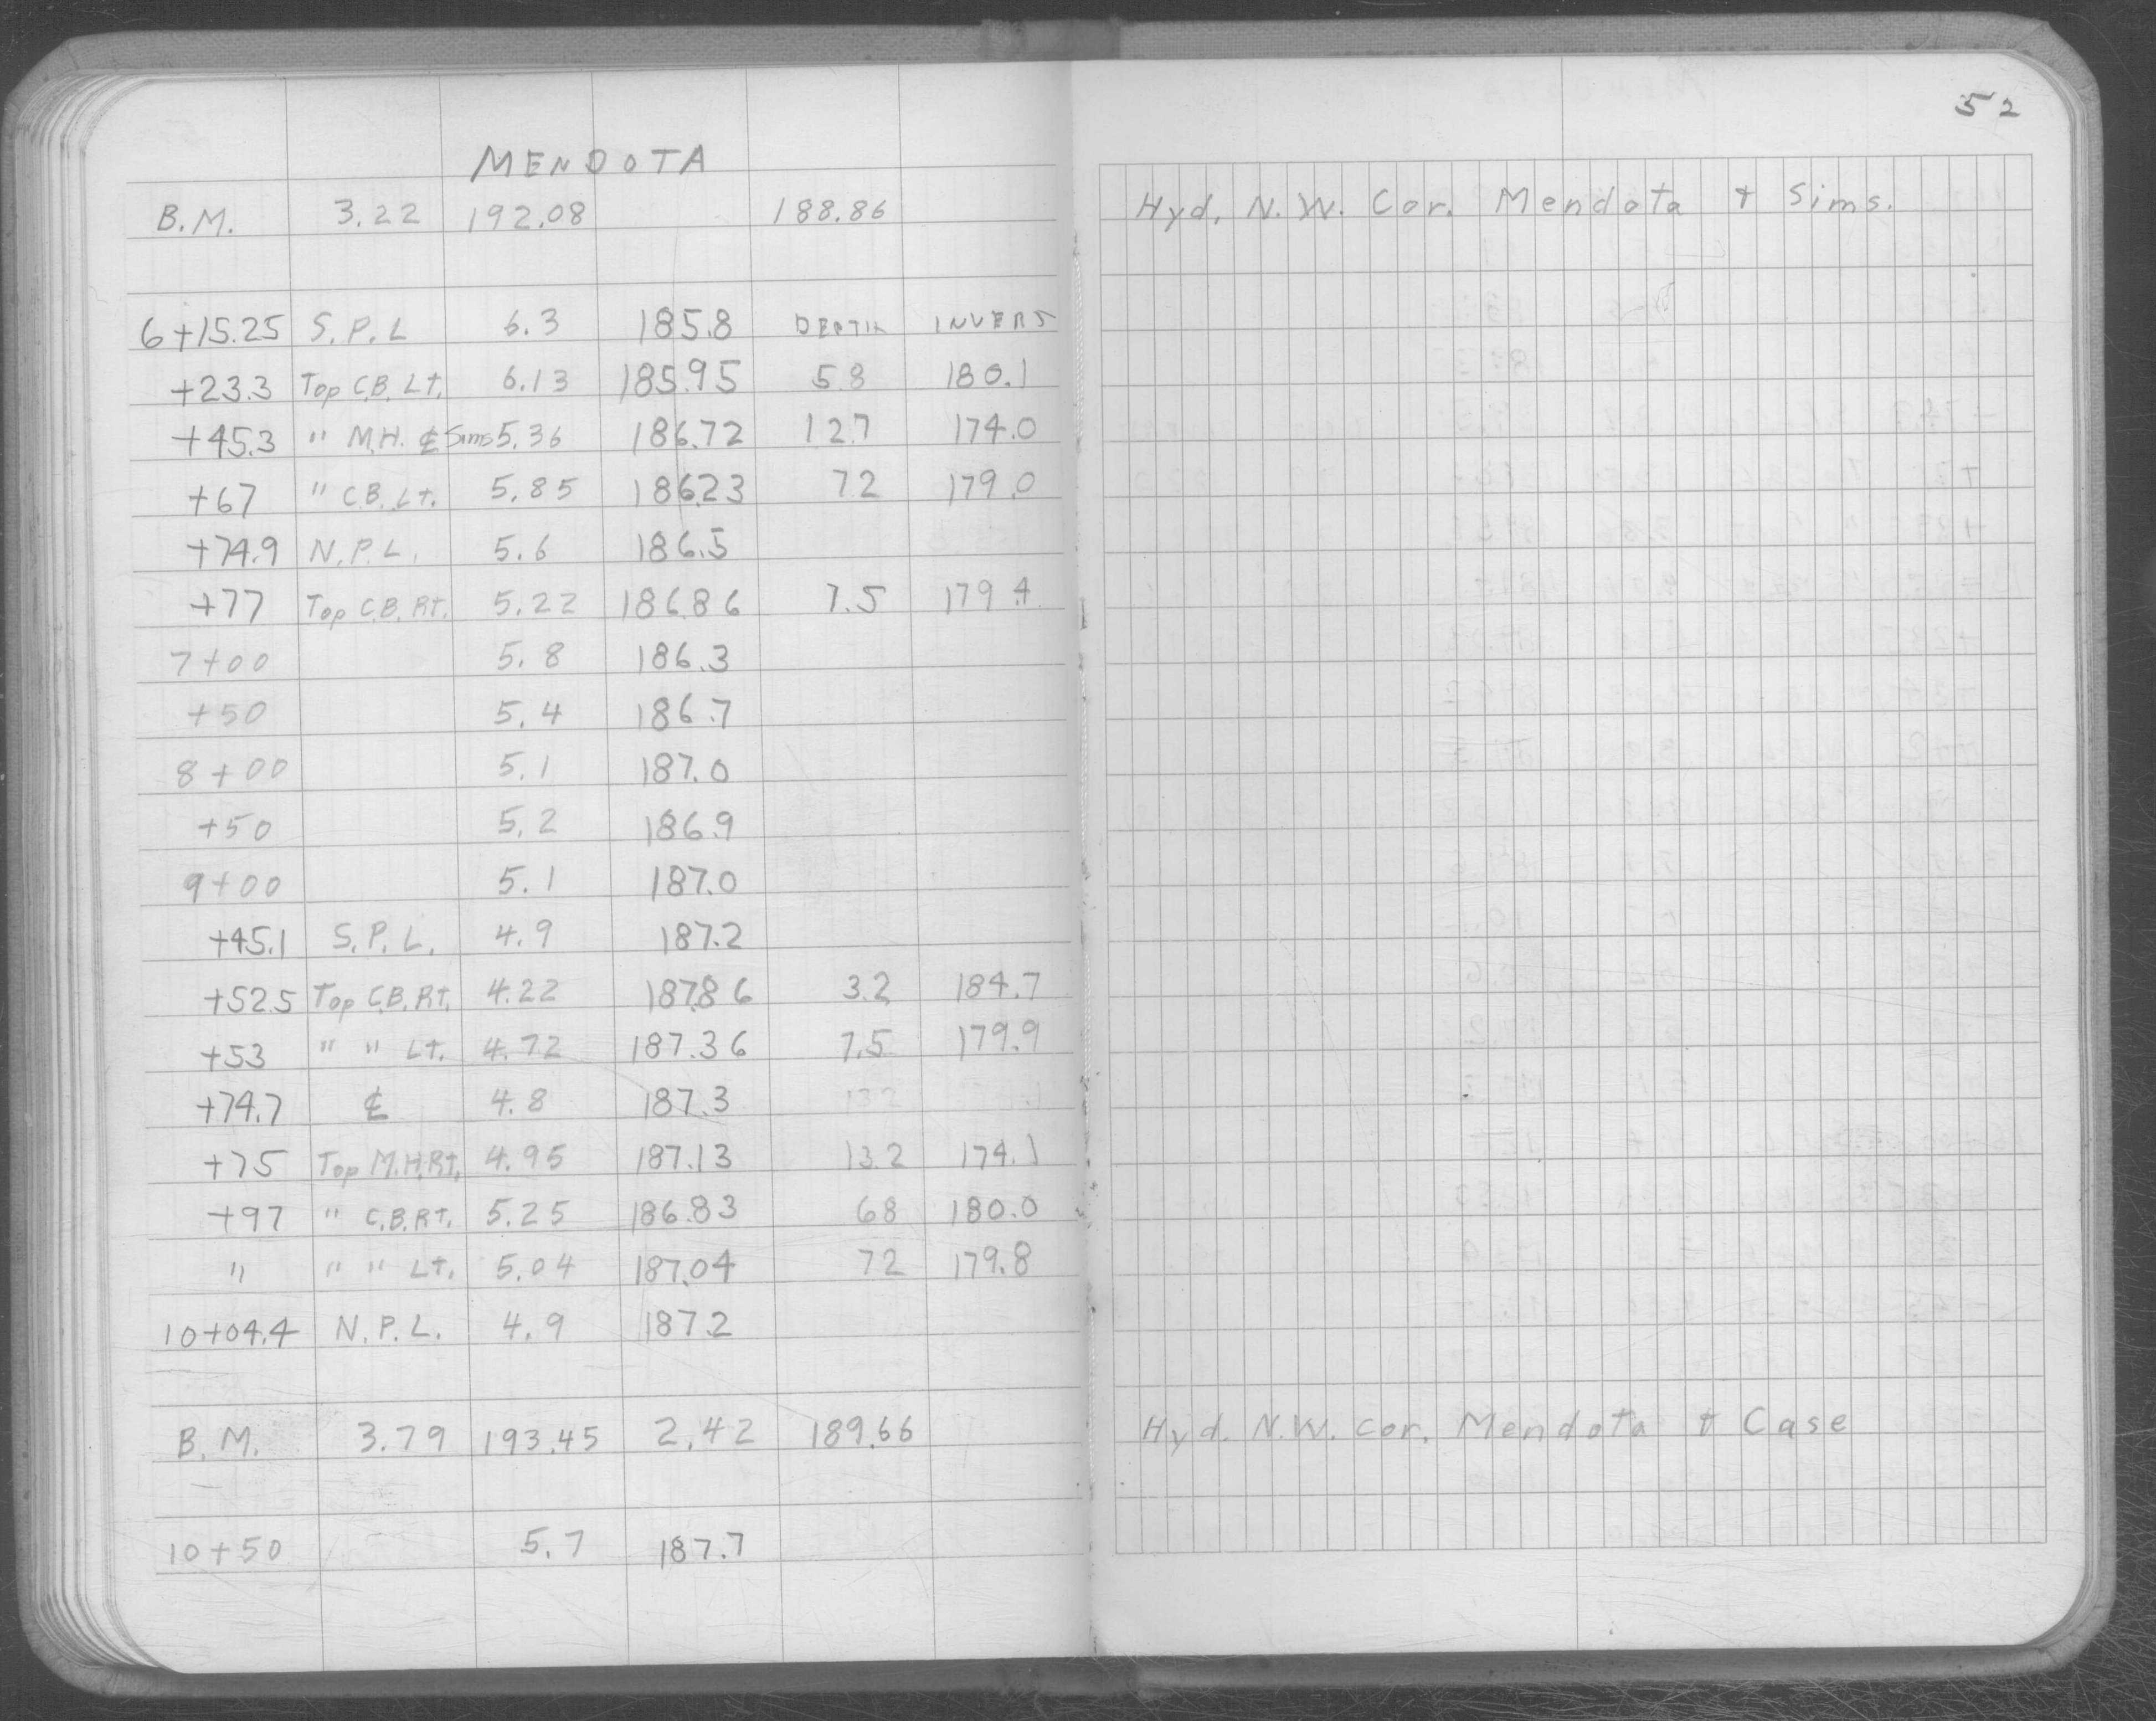 52
MENDOTA
B.M. 3.22 192.08 188.86 Hyd. N.W. Cor. Mendota + Sims.
6+15.25 S.P.L 6.3 185.8 DEPTH INVERT
+23.3 Top C.B. Lt. 6.13 185.95 5.8 180.1
+45.3 " M.H. ℄ Sims 5.36 186.72 12.7 174.0
+67 " C.B. Lt. 5.85 186.23 7.2 179.0
+74.9 N.P.L. 5.6 186.5
+77 Top C.B. Rt. 5.22 186.86 7.5 179.4
7+00 5.8 186.3
+50 5.4 186.7
8+00 5.1 187.0
+50 5.2 186.9
9+00 5.1 187.0
+45.1 S.P.L. 4.9 187.2
+52.5 Top C.B. Rt. 4.22 187.86 3.2 184.7
+53 " " Lt. 4.72 187.36 7.5 179.9
+74.7 ℄ 4.8 187.3
+75 Top M.H. Rt. 4.95 187.13 13.2 174.1
+97 " C.B. Rt. 5.25 186.83 6.8 180.0
" " " Lt. 5.04 187.04 7.2 179.8
10+04.4 N.P.L. 4.9 187.2
B.M. 3.79 193.45 2.42 189.66 Hyd. N.W. cor. Mendota + Case
10+50 5.7 187.7